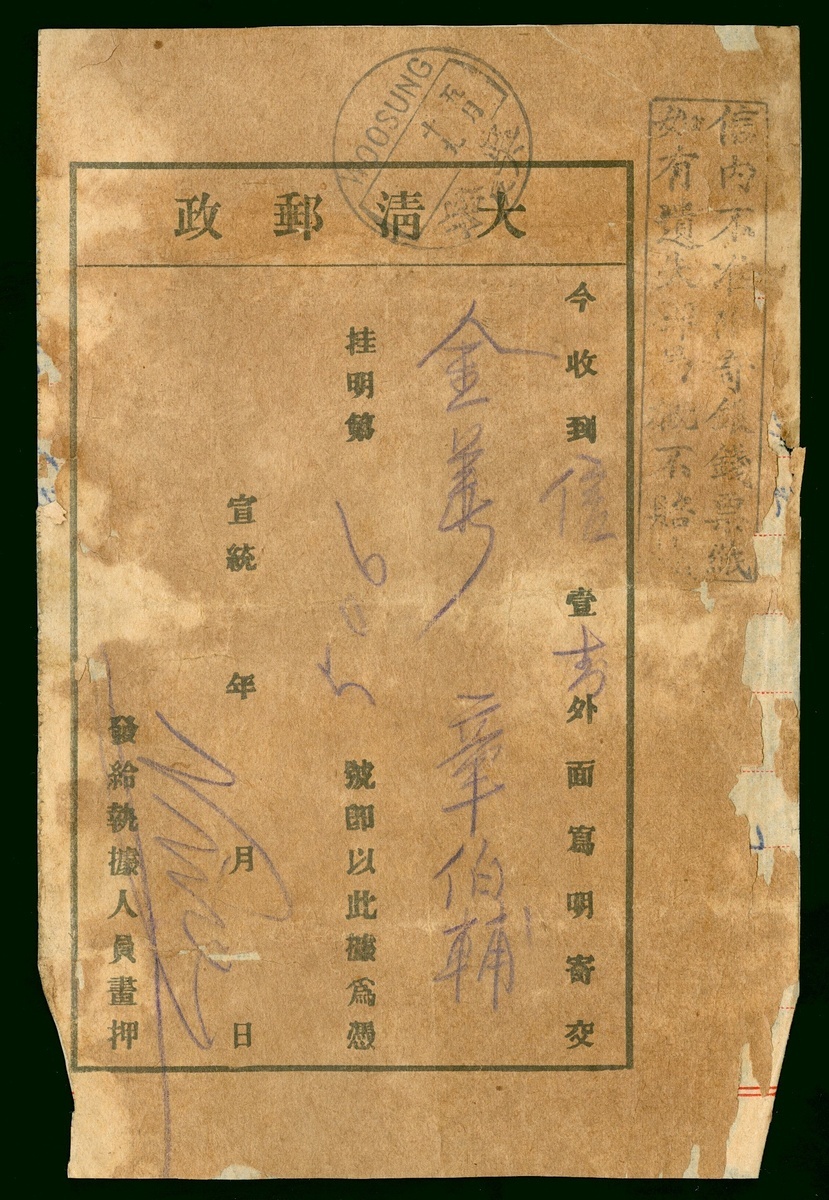 WOOSUNG
五月
十九
大清郵政
信內不准寄銀錢票紙
如有遺失概不賠
今收到信壹封外面寫明寄交
金華 章伯輔
挂明第 號即以此據為憑
宣統 年 月 日
發給執據人員畫押